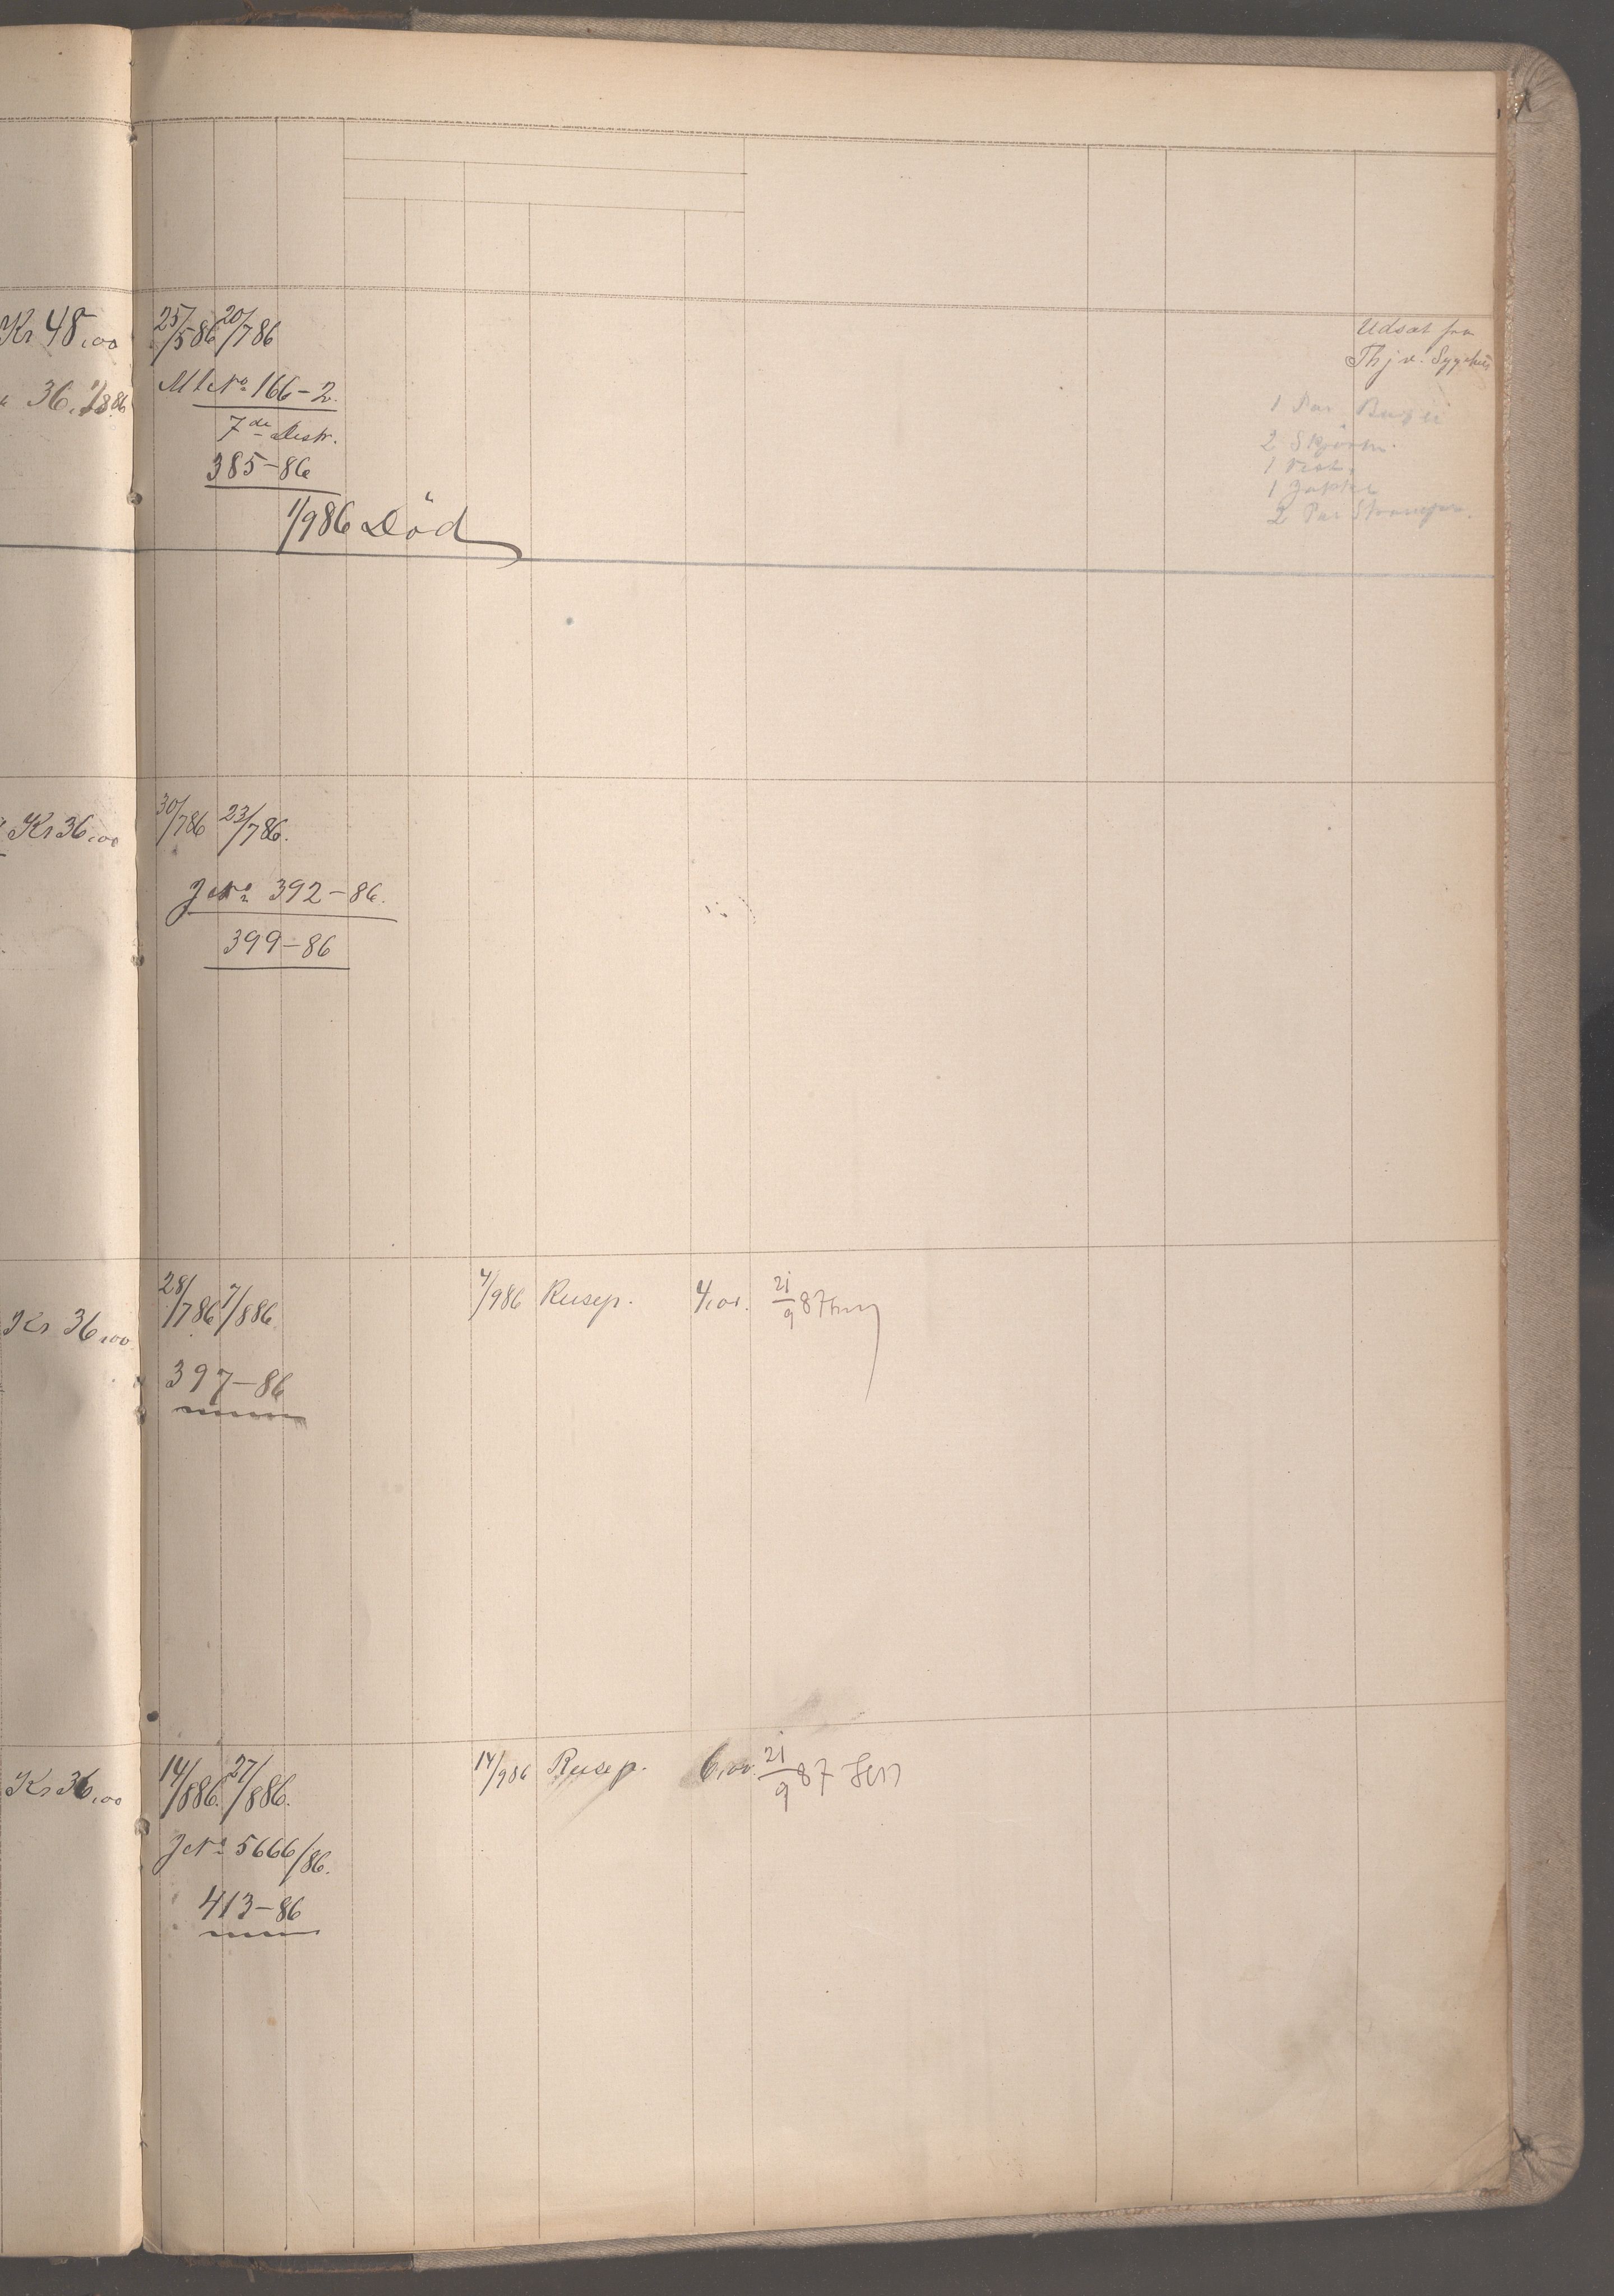 Kr 48,00 25/586 20/786
36, 1/886
MtNo 166-2.
7de Distr.
385-86
1/986 Död
Udsat fra
Thjv. Sygehus
1 Par Buxer
2 Skjorter
1 Vest,
1 Jakke
2 Par Strømper.
Kr 36,00 30/786 23/786.
JNo 392-86.
399-86
Kr 36,00 28/786 7/886 4/986 Rusep. 4,00. 21/9 87
397-86
Kr 36,00 14/886. 27/886. 14/986 Rusep. 6,00. 21/9 87
JNo 5666/86.
413-86